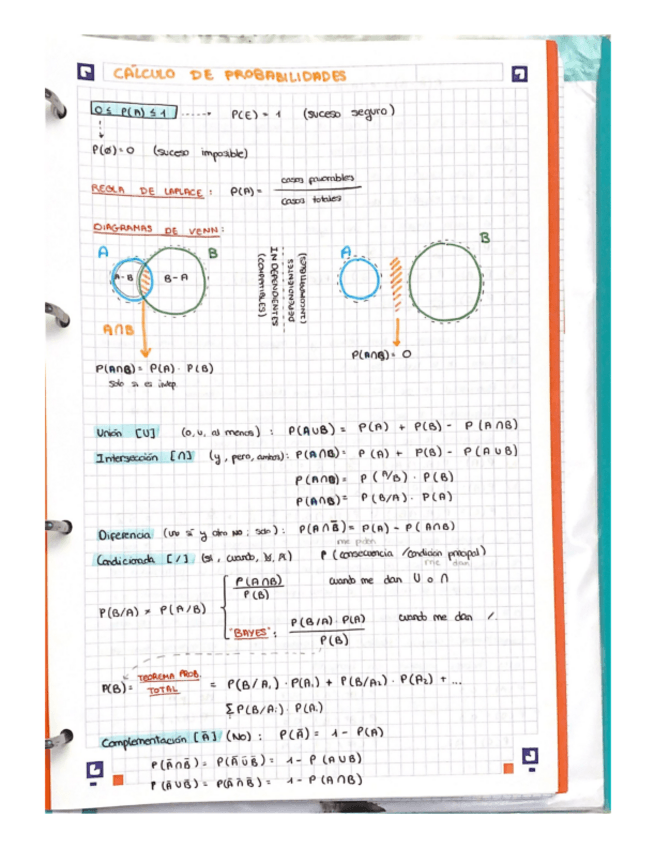 CÁLCULO DE PROBABILIDADES
0 ≤ P(A) ≤ 1 ......→ P(E) = 1 (suceso seguro)
P(Ø)=0 (suceso imposible)
REGLA DE LAPLACE : P(A) = casos favorables / casos totales
DIAGRAMAS DE VENN:
A B
A-B B-A
A∩B
INDEPENDIENTES (COMPATIBLES)
DEPENDIENTES (INCOMPATIBLES)
A B
P(A∩B) = 0
P(A∩B) = P(A) · P(B)
Solo si es indep.
Unión [U] (o, u, al menos) : P(A∪B) = P(A) + P(B) - P(A∩B)
Intersección [∩] (y, pero, ambos): P(A∩B) = P(A) + P(B) - P(A∪B)
P(A∩B) = P(A/B) · P(B)
P(A∩B) = P(B/A) · P(A)
Diferencia (uno sí y otro no ; solo) : P(A∩B̄) = P(A) - P(A∩B)
me piden
Condicionada [/] (si, cuando, P (consecuencia /condicion principal)
me dan
P(B/A) ≠ P(A/B)
P(A∩B) / P(B) cuando me dan U o ∩
"BAYES": P(B/A) · P(A) / P(B) cuando me dan /.
P(B) = TEOREMA PROB. TOTAL = P(B/A₁) · P(A₁) + P(B/A₂) · P(A₂) + ...
Σ P(B/Aᵢ) · P(Aᵢ)
Complementación [Ā] (No) : P(Ā) = 1 - P(A)
P(Ā∩B̄) = P(Ā Ū B̄) = 1 - P(A∪B)
P(Ā∪B̄) = P(Ā ∩̄ B̄) = 1 - P(A∩B)